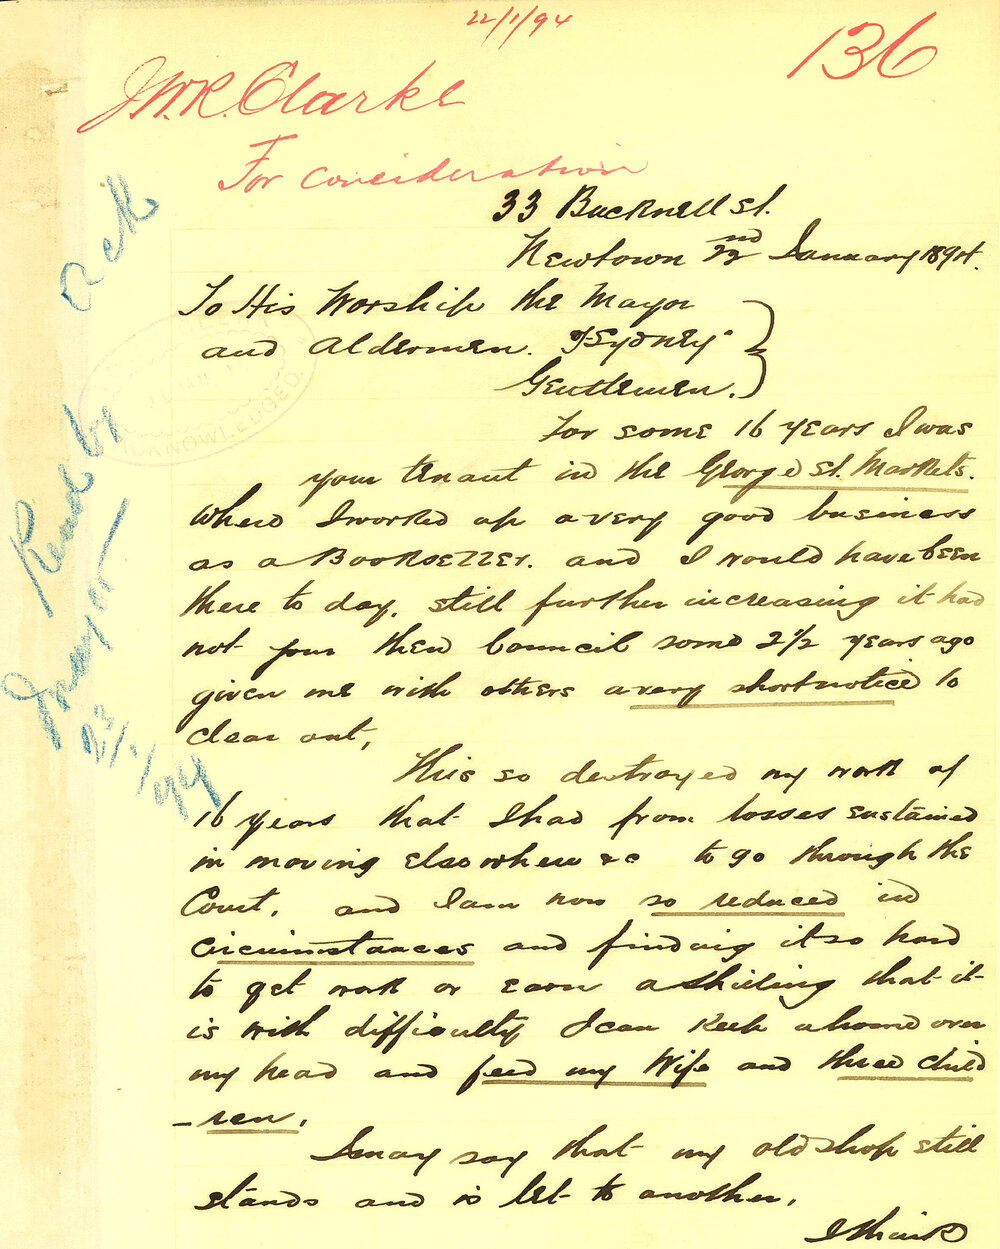 22/1/94
136
J.W.R. Clarke
For consideration
33 Bucknell St.
Newtown 22nd January 1894.
To His Worship the Mayor
and Aldermen. of Sydney
Gentlemen.
For some 16 years I was
your tenant in the George St. Markets.
where I worked up a very good business
as a Bookseller. and I would have been
there to day, still further increasing it had
not your then Council some 2½ years ago
given me with others a very short notice to
clear out,
This so destroyed my work of
16 years that I had from losses sustained
in moving elsewhere &c to go through the
Court, and I am now so reduced in
circumstances and finding it so hard
to get work or earn a shilling that it
is with difficulty I can keep a home over
my head and feed my Wife and three child
-ren.
I may say that my old shop still
stands and is let to another.
I think
Ack
Read by
Mayor
23/1/94
ACKNOWLEDGED